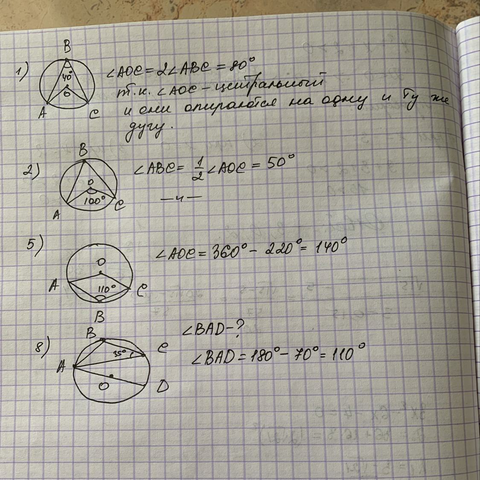 1) B 40° O A C ∠AOC = 2∠ABC = 80°
т.к. ∠AOC - центральный
и они опираются на одну и ту же
дугу.
2) B O 100° A C ∠ABC = 1/2 ∠AOC = 50°
—〃—
5) O A 110° C B ∠AOC = 360° - 220° = 140°
8) B C 35° A O D ∠BAD - ?
∠BAD = 180° - 70° = 110°